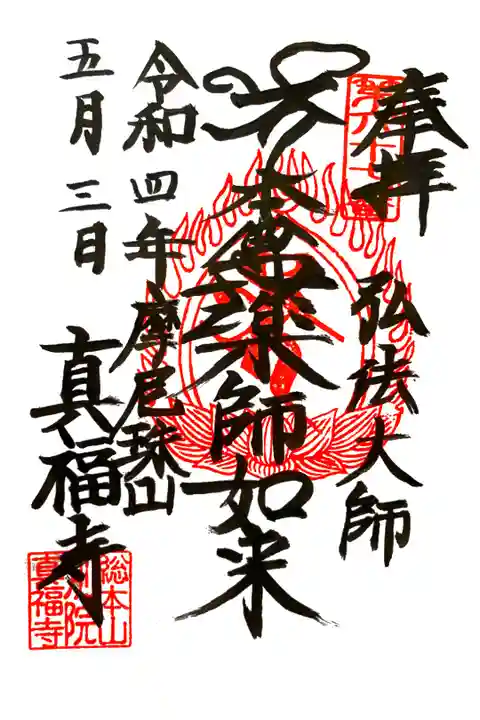 奉拝
弘法大師
本尊薬師如来
令和四年摩尼珠山
五月三日
真福寺
総本山
院
真福寺